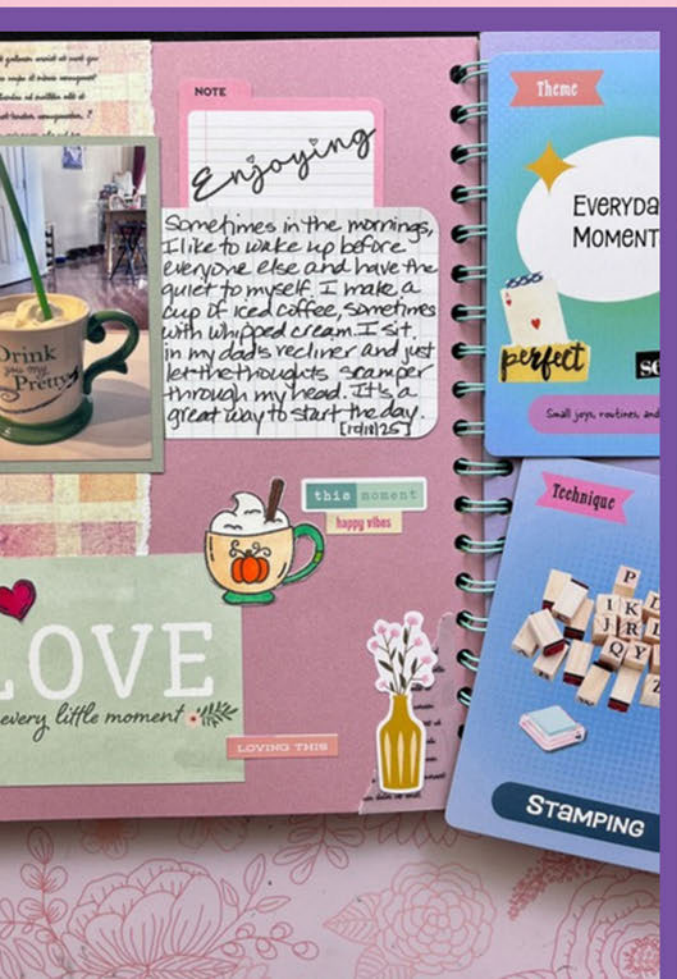 NOTE
Enjoying
Sometimes in the mornings,
I like to wake up before
everyone else and have the
quiet to myself. I make a
cup of iced coffee, sometimes
with whipped cream. I sit
in my dad's recliner and just
let the thoughts scamper
through my head. It's a
great way to start the day.
[10/18/25]
Drink
you my
Pretty
this moment
happy vibes
LOVE
every little moment
LOVING THIS
Theme
EVERYDA
MOMENT
perfect
Small joys, routines, and
Technique
P
I K
J R
Q Y
Z
STAMPING